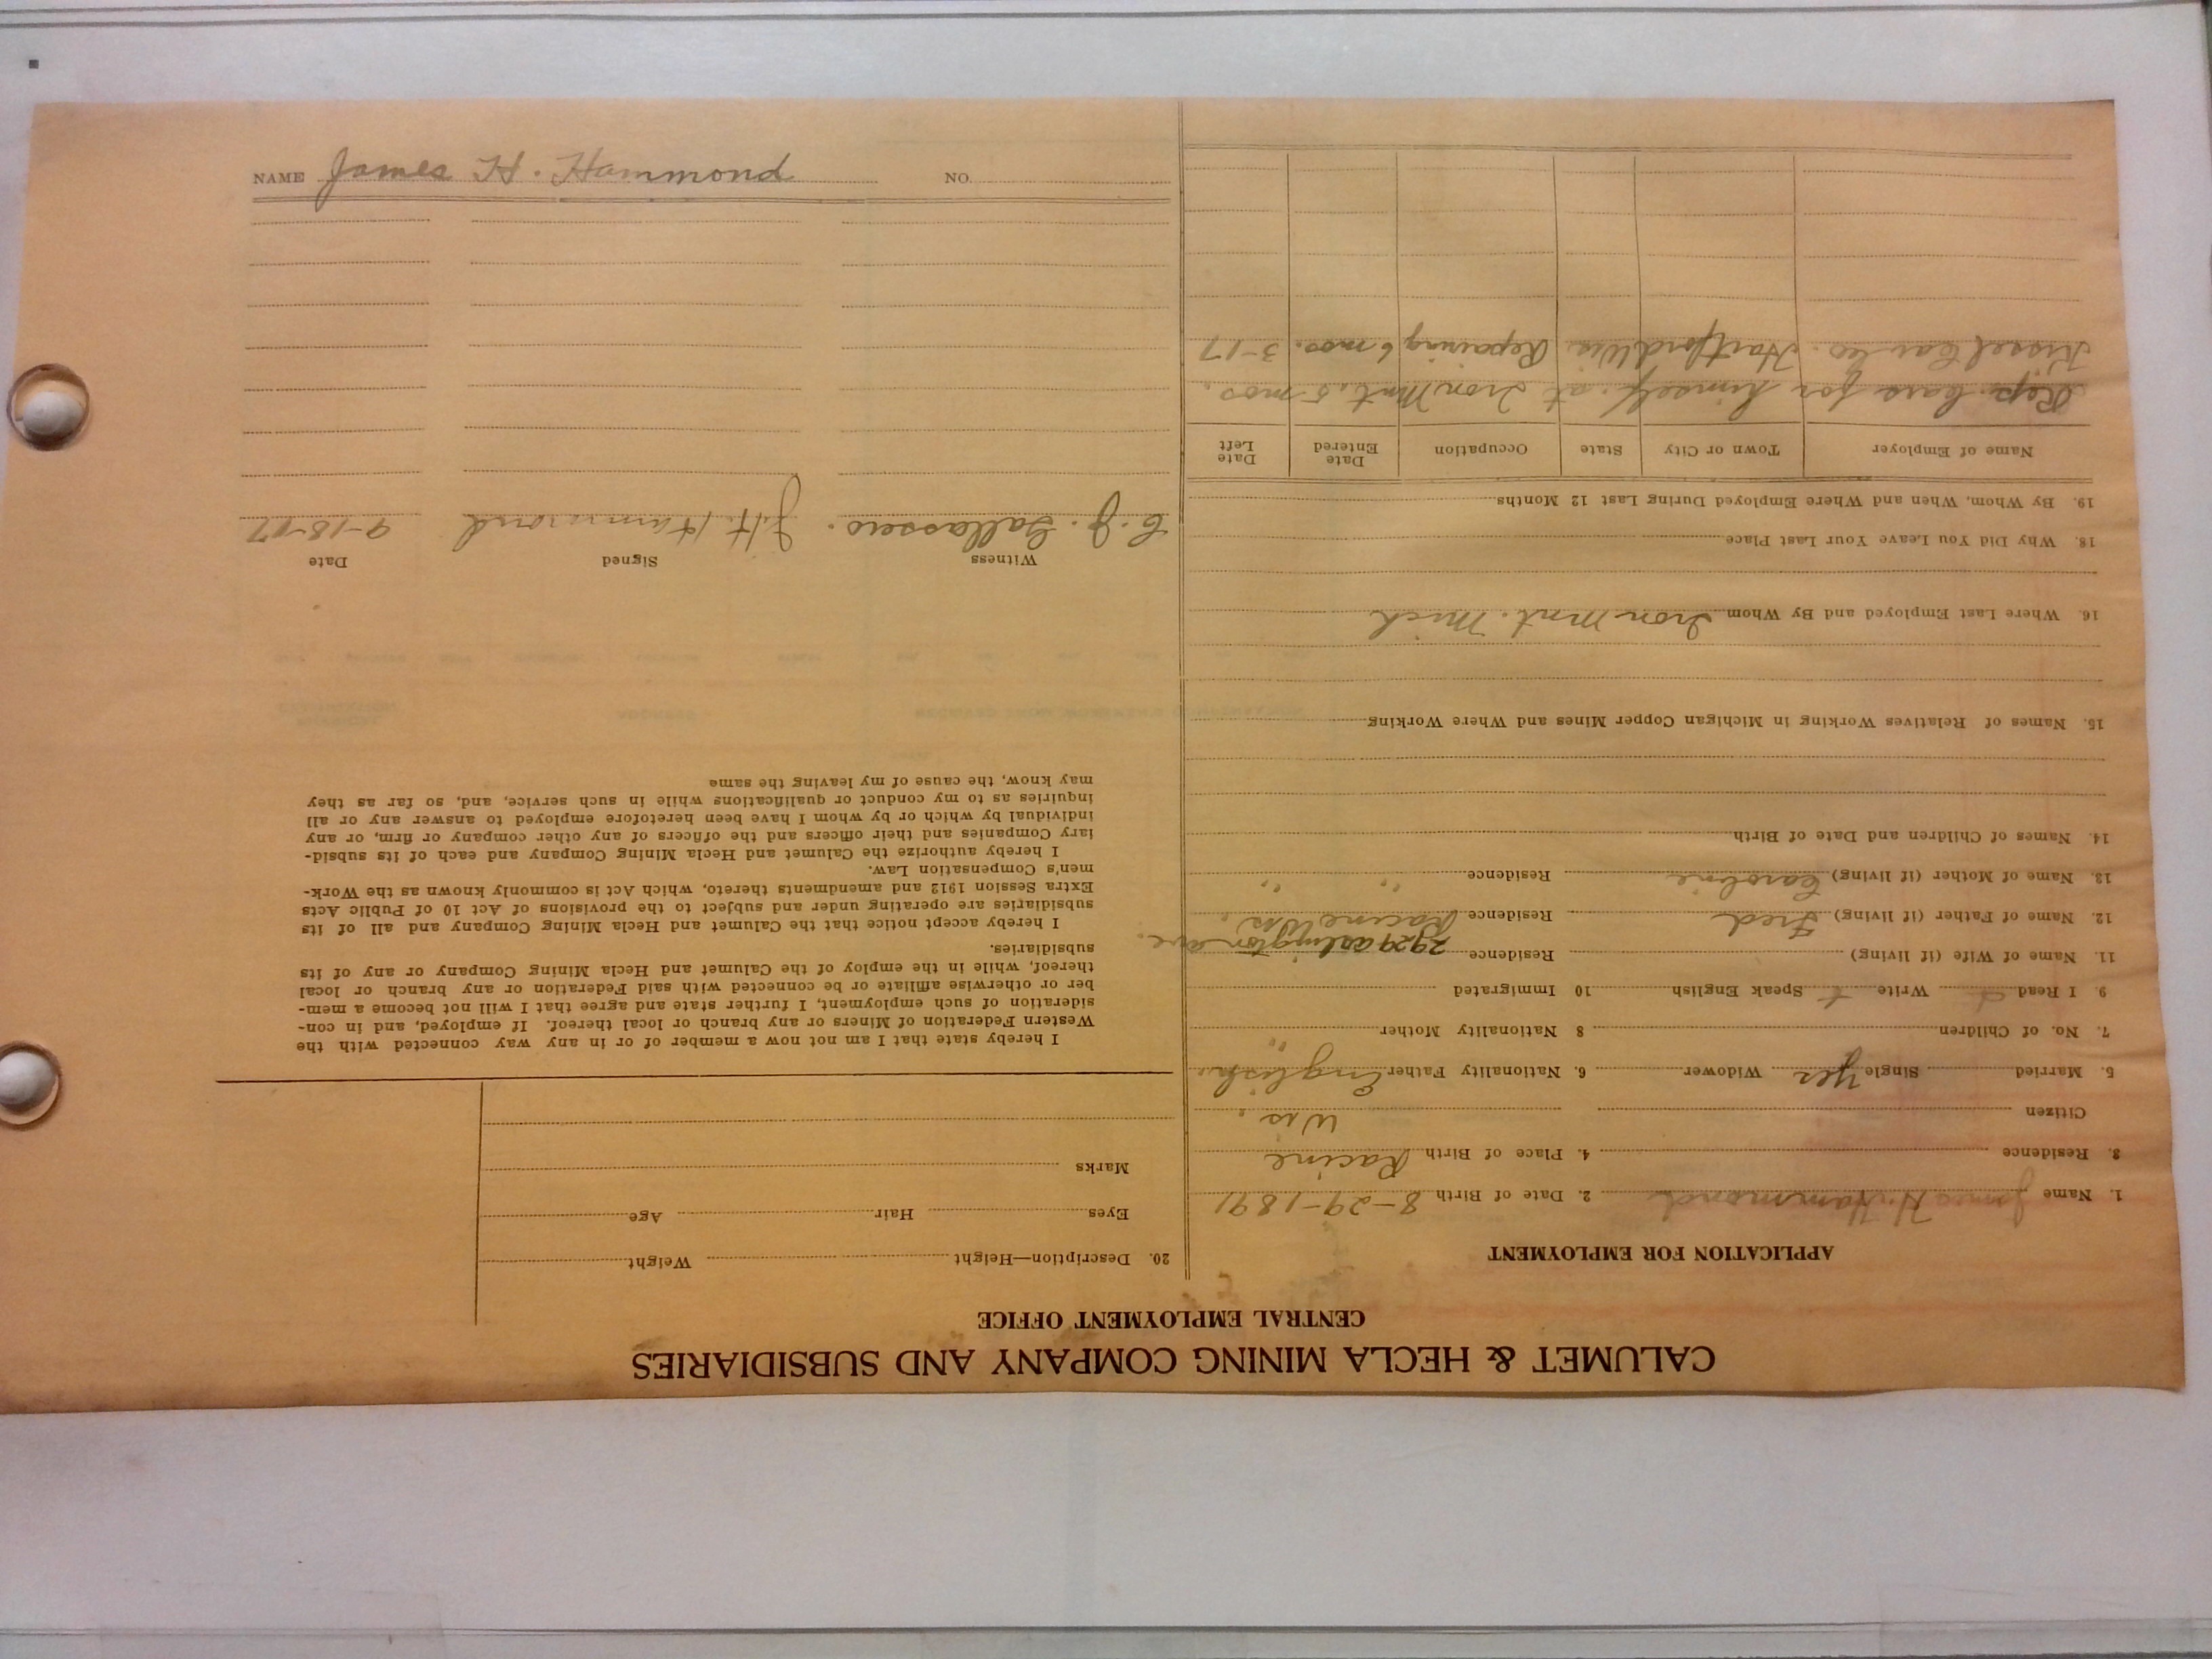 CALUMET & HECLA MINING COMPANY AND SUBSIDIARIES
CENTRAL EMPLOYMENT OFFICE
APPLICATION FOR EMPLOYMENT
1. Name James H. Hammond 2. Date of Birth 8-29-1891
3. Residence 4. Place of Birth Racine
Citizen Wis.
5. Married Single Yes Widower 6. Nationality Father English.
7. No. of Children 8 Nationality Mother " "
9. I Read Write Speak English 10 Immigrated
11. Name of Wife (if living) Residence 2929 ave.
12. Name of Father (if living) Fred Residence Racine Wis.
13. Name of Mother (if living) Caroline Residence " "
14. Names of Children and Date of Birth
15. Names of Relatives Working in Michigan Copper Mines and Where Working
16. Where Last Employed and By Whom Iron Mnt. Mich
18. Why Did You Leave Your Last Place
19. By Whom, When and Where Employed During Last 12 Months
Name of Employer Town or City State Occupation Date Entered Date Left
Rep. Cars for himself. at Iron Mnt. 5 mos.
Kissel Car Co. Hartford Wis. Repairing 6 mos. 3-17
20. Description—Height Weight
Eyes Hair Age
Marks
I hereby state that I am not now a member of or in any way connected with the
Western Federation of Miners or any branch or local thereof. If employed, and in con-
sideration of such employment, I further state and agree that I will not become a mem-
ber or otherwise affiliate or be connected with said Federation or any branch or local
thereof, while in the employ of the Calumet and Hecla Mining Company or any of its
subsidiaries.
I hereby accept notice that the Calumet and Hecla Mining Company and all of its
subsidiaries are operating under and subject to the provisions of Act 10 of Public Acts
Extra Session 1912 and amendments thereto, which Act is commonly known as the Work-
men's Compensation Law.
I hereby authorize the Calumet and Hecla Mining Company and each of its subsid-
iary Companies and their officers and the officers of any other company or firm, or any
individual by which or by whom I have been heretofore employed to answer any or all
inquiries as to my conduct or qualifications while in such service, and, so far as they
may know, the cause of my leaving the same
Witness Signed Date
C. J. J. H. Hammond 9-18-17
NAME James H. Hammond NO.